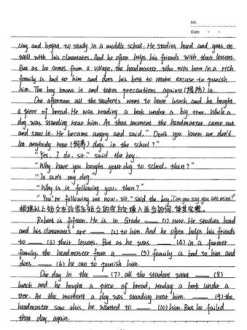 No.
Date
ing and began to study in a middle school. He studies hard and gets on
well with his classmates. And he often helps his friends with their lessons.
But as he comes from a village, the headmaster who was born in a rich
family is bad to him and does his best to make excuse to punish
him. The boy knows it and takes precautions against (提防) it.
One afternoon all the students went to have lunch and he bought
a piece of bread. He was reading a book under a big tree. When a
dog was standing near him. At that moment the headmaster came out
and saw it. He became angry and said, "Don't you know we don't
let anybody have (饲养) dogs in the school?"
"Yes, I do, sir," said the boy.
"Why have you brought your dog to school, then?"
"It isn't my dog."
"Why is it following you, then?"
"You're following me now, sir," said the boy. "Can you say you are mine?"
Robert is fifteen. He is in Grade (1) now. He studies hard
and his classmates are (2) to him. And he often helps his friends
to (3) their lessons. But as he was (4) in a farmer
family, the headmaster from a (5) family is bad to him and
does (6) he can to punish him.
One day in the (7), all the students were (8)
lunch and he bought a piece of bread, reading a book under a
tree. At the moment a dog was standing near him. (9) the
headmaster saw this, he wanted to (10) him. But he failed
that day again.